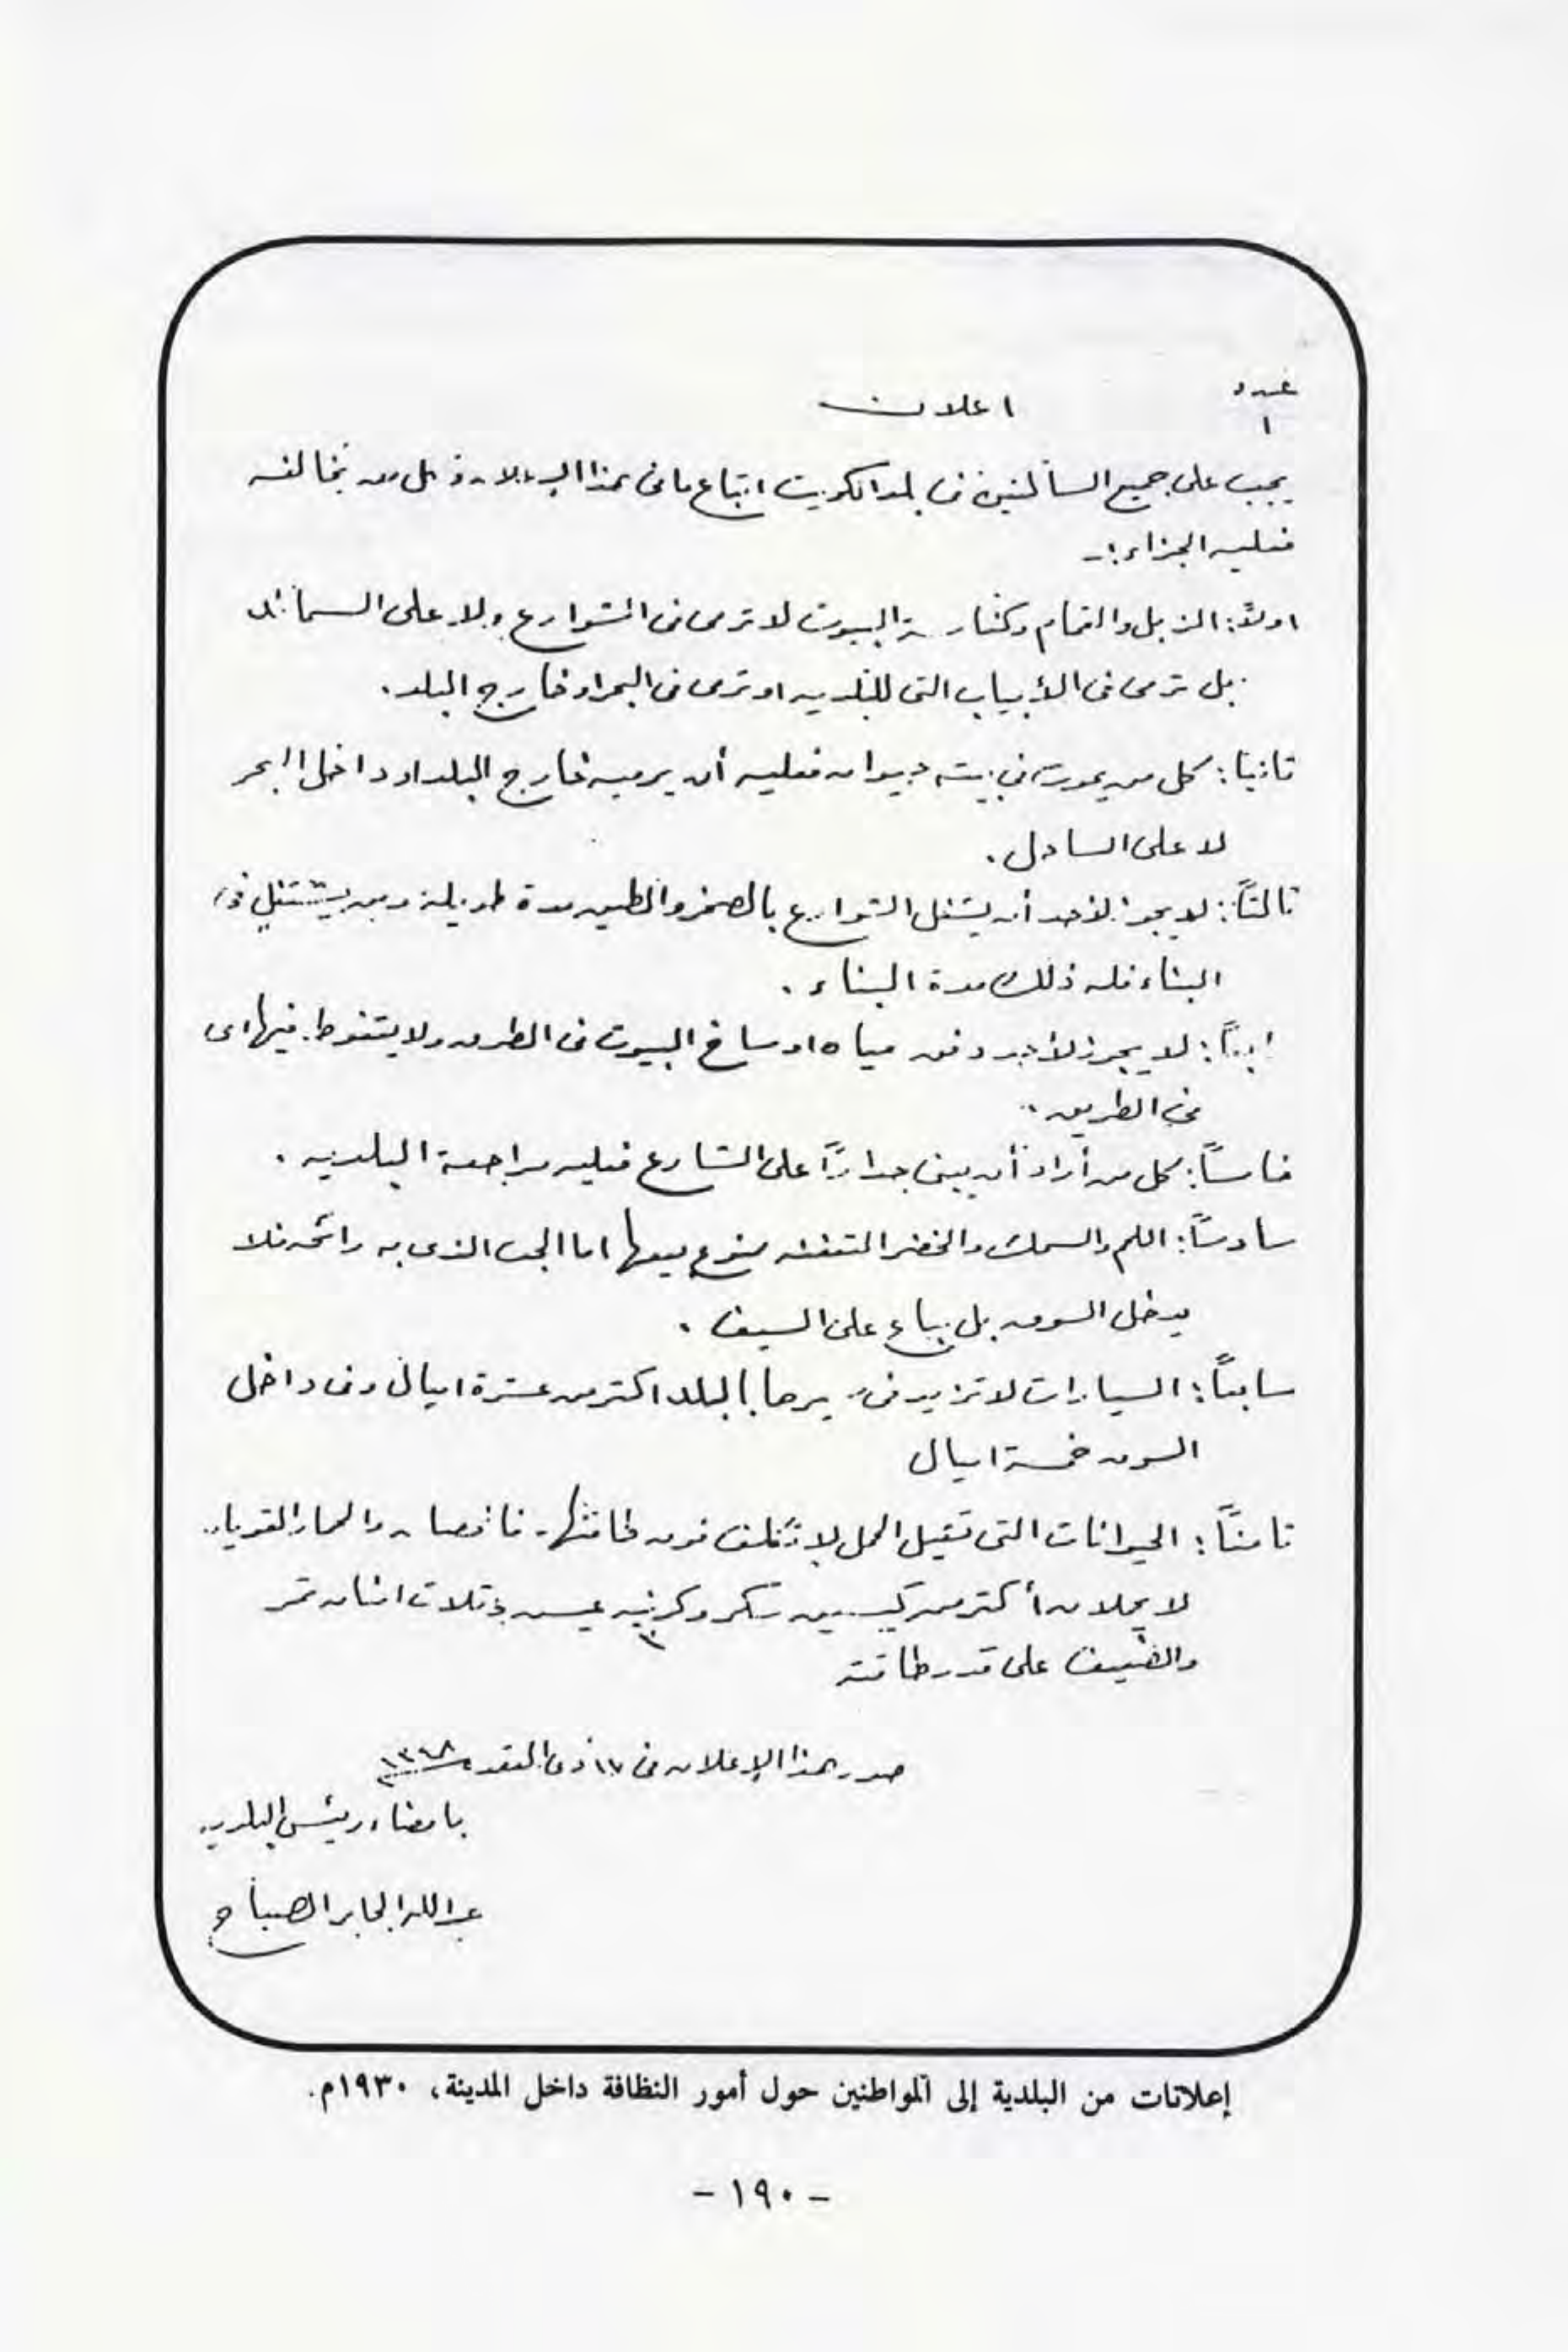 عدد
١
اعلان
يجب على جميع الساكنين في بلد الكويت اتباع ما في هذا الإعلان وكل من يخالفه
فعليه الجزاء :ـ
اولاً: الزبل والقمام وكناسة البيوت لا ترمى في الشوارع ولا على السمائد
بل ترمى في الأبياب التي للبلديه او ترمى في البحر او خارج البلد .
ثانيا: كل من يموت في بيته حيوان فعليه أن يرميه خارج البلد او داخل البحر
لا على الساحل .
ثالثاً: لا يجوز لأحد أن يشغل الشوارع بالصخر والطين مدة طويلة ومن يشتغل في
البناء فله ذلك مدة البناء .
رابعاً: لا يجوز لأحد دفق مياه اوساخ البيوت في الطرق ولا يتغوط فيها اى
في الطريق .
خامساً: كل من أراد أن يبنى جداراً على الشارع فعليه مراجعة البلديه .
سادساً: اللحم والسمك والخضر المتعفنه ممنوع بيعها اما الذى به رائحه فلا
يدخل السوق بل يباع على السيف .
سابعاً: السيارات لا تزيد في سيرها بالبلد اكثر من عشرة اميال وفى داخل
السوق خمسة اميال
ثامناً: الحيوانات التي تشيل الحمل لا تكلف فوق طاقتها، فالحصان والحمار القويان
لا يحملان أكثر من كيسين سكر و عيش وثلاث امنان تمر
والضعيف على قدر طاقته
صدر هذا الإعلان في ١٧ ذى القعده ١٣٤٨
بامضاء رئيس البلديه
عبدالله الجابر الصباح
إعلانات من البلدية إلى المواطنين حول أمور النظافة داخل المدينة، ١٩٣٠م.
- ١٩٠ -